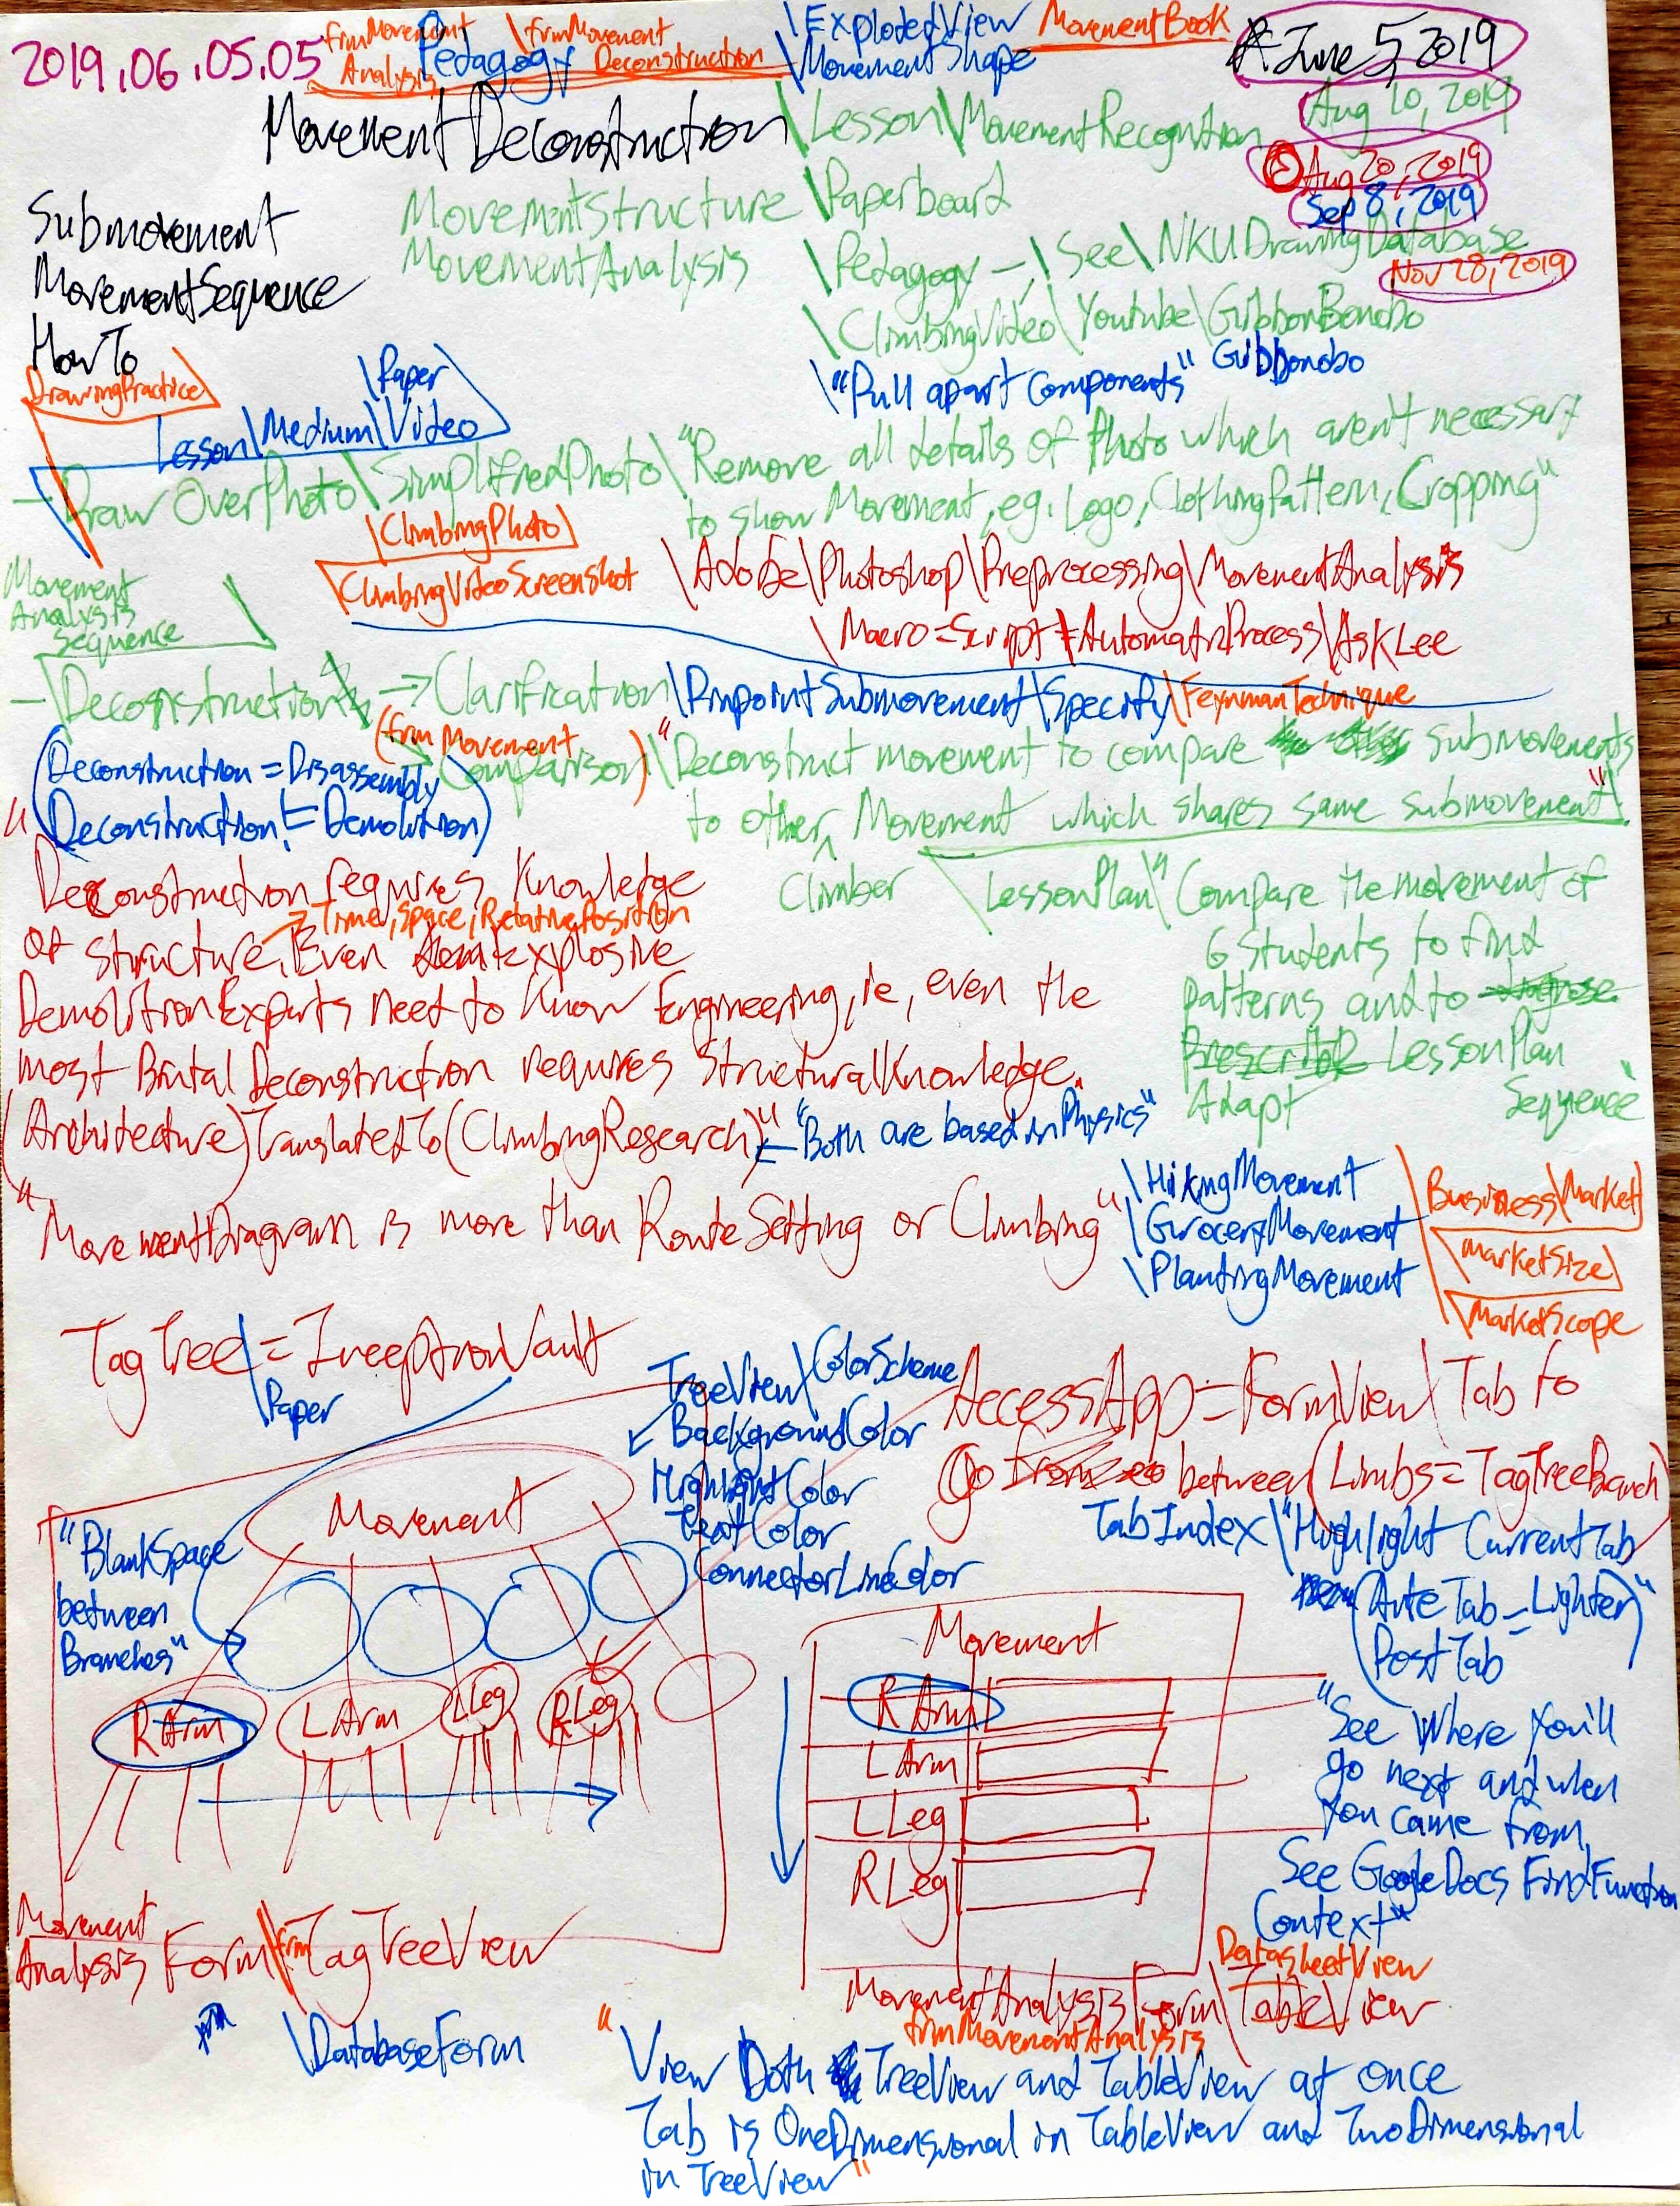 2019.06.05.05
frmMovement Analysis
Pedagogy
\frmMovement Deconstruction
\ExplodedView
\MovementShape
MovementBook
June 5, 2019
Aug 10, 2019
Aug 20, 2019
Sep 8, 2019
Nov 28, 2019
MovementDeconstruction
\Lesson\MovementRecognition
Submovement
MovementSequence
HowTo
MovementStructure
MovementAnalysis
\Paperboard
\Pedagogy - \See\NKUDrawingDatabase
\ClimbingVideo\Youtube\GibbonBonobo
\"Pull apart Components"
Gibbonobo
DrawingPractice
\Paper
Lesson\Medium\Video
- DrawOverPhoto\SimplifiedPhoto\"Remove all details of Photo which aren't necessary
to show Movement, eg. Logo, ClothingPattern, Cropping"
\ClimbingPhoto
\ClimbingVideoScreenshot
\Adobe\Photoshop\Preprocessing\MovementAnalysis
\Macro=Script=AutomaticProcess\AskLee
Movement
Analysis
Sequence
- \Deconstruction → Clarification\PinpointSubmovement\Specify\FeynmanTechnique
(frmMovement
Comparison)\"Deconstruct movement to compare submovements
to other Climber Movement which shares same submovement"
(Deconstruction = Disassembly
Deconstruction != Demolition)
\LessonPlan\"Compare the movement of
6 Students to find
patterns and to
Adapt LessonPlan
Sequence"
"Deconstruction requires Knowledge
→ Time, Space, RelativePosition
of structure. Even Explosive
DemolitionExperts need to know Engineering, ie, even the
most Brutal Deconstruction requires StructuralKnowledge.
(Architecture)TranslatedTo(ClimbingResearch)" ← "Both are based in Physics"
"MovementDiagram is more than RouteSetting or Climbing"
\HikingMovement
\GroceryMovement
\PlantingMovement
Business\Market
\MarketSize
\MarketScope
TagTree = InceptionVault
\Paper
TreeView\ColorScheme
BackgroundColor
HighlightColor
TextColor
ConnectorLineColor
AccessApp = FormView\Tab to
Go between (Limbs = TagTreeBranch)
TabIndex\"Highlight CurrentTab
(AnteTab = Lighter)"
PostTab
"See where you'll
go next and when
you came from,
See GoogleDocs FindFunction
Context"
"BlankSpace
between
Branches"
Movement
R Arm
L Arm
L Leg
R Leg
Movement
R Arm
L Arm
L Leg
R Leg
Movement
Analysis Form\frmTagTreeView
\DatabaseForm
DatasheetView
MovementAnalysis Form\TableView
frmMovementAnalysis
"View Both TreeView and TableView at once
Tab is OneDimensional in TableView and TwoDimensional
in TreeView"